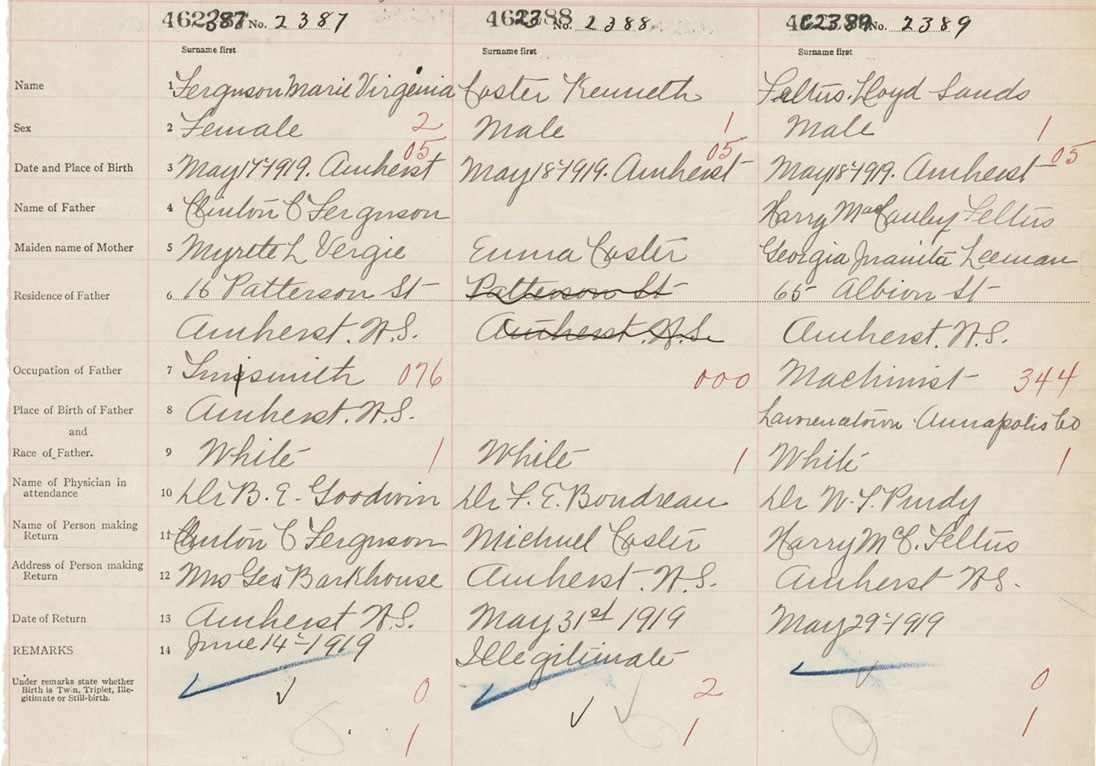 462387 No. 2387 462388 No. 2388 462389 No. 2389
Surname first Surname first Surname first
Name 1 Ferguson Marie Virginia Coster Kenneth Feltus. Lloyd Sands
Sex 2 Female 2 Male 1 Male 1
Date and Place of Birth 3 May 17th 1919. Amherst 05 May 18th 1919. Amherst 05 May 18th 1919. Amherst 05
Name of Father 4 Clinton C Ferguson Harry MacCauley Feltus
Maiden name of Mother 5 Myrete L Vergie Emma Coster Georgia Juanita Leeman
Residence of Father 6 16 Patterson St Patterson St 65 Albion St
Amherst. N.S. Amherst. N.S. Amherst. N.S.
Occupation of Father 7 Tinsmith 076 000 Machinist 344
Place of Birth of Father 8 Amherst. N.S. Lawrencetown Annapolis Co
and
Race of Father. 9 White 1 White 1 White 1
Name of Physician in
attendance 10 Dr B. E. Goodwin Dr F. E. Boudreau Dr W. T. Purdy
Name of Person making
Return 11 Clinton C Ferguson Michael Coster Harry McC. Feltus
Address of Person making
Return 12 Mrs Geo Barkhouse Amherst. N.S. Amherst N.S.
Date of Return 13 Amherst N.S. May 31st 1919 May 29th 1919
REMARKS 14 June 14th 1919 Illegitimate
Under remarks state whether
Birth is Twin, Triplet, Ille-
gitimate or Still-birth. 0 2 0
1 1 1